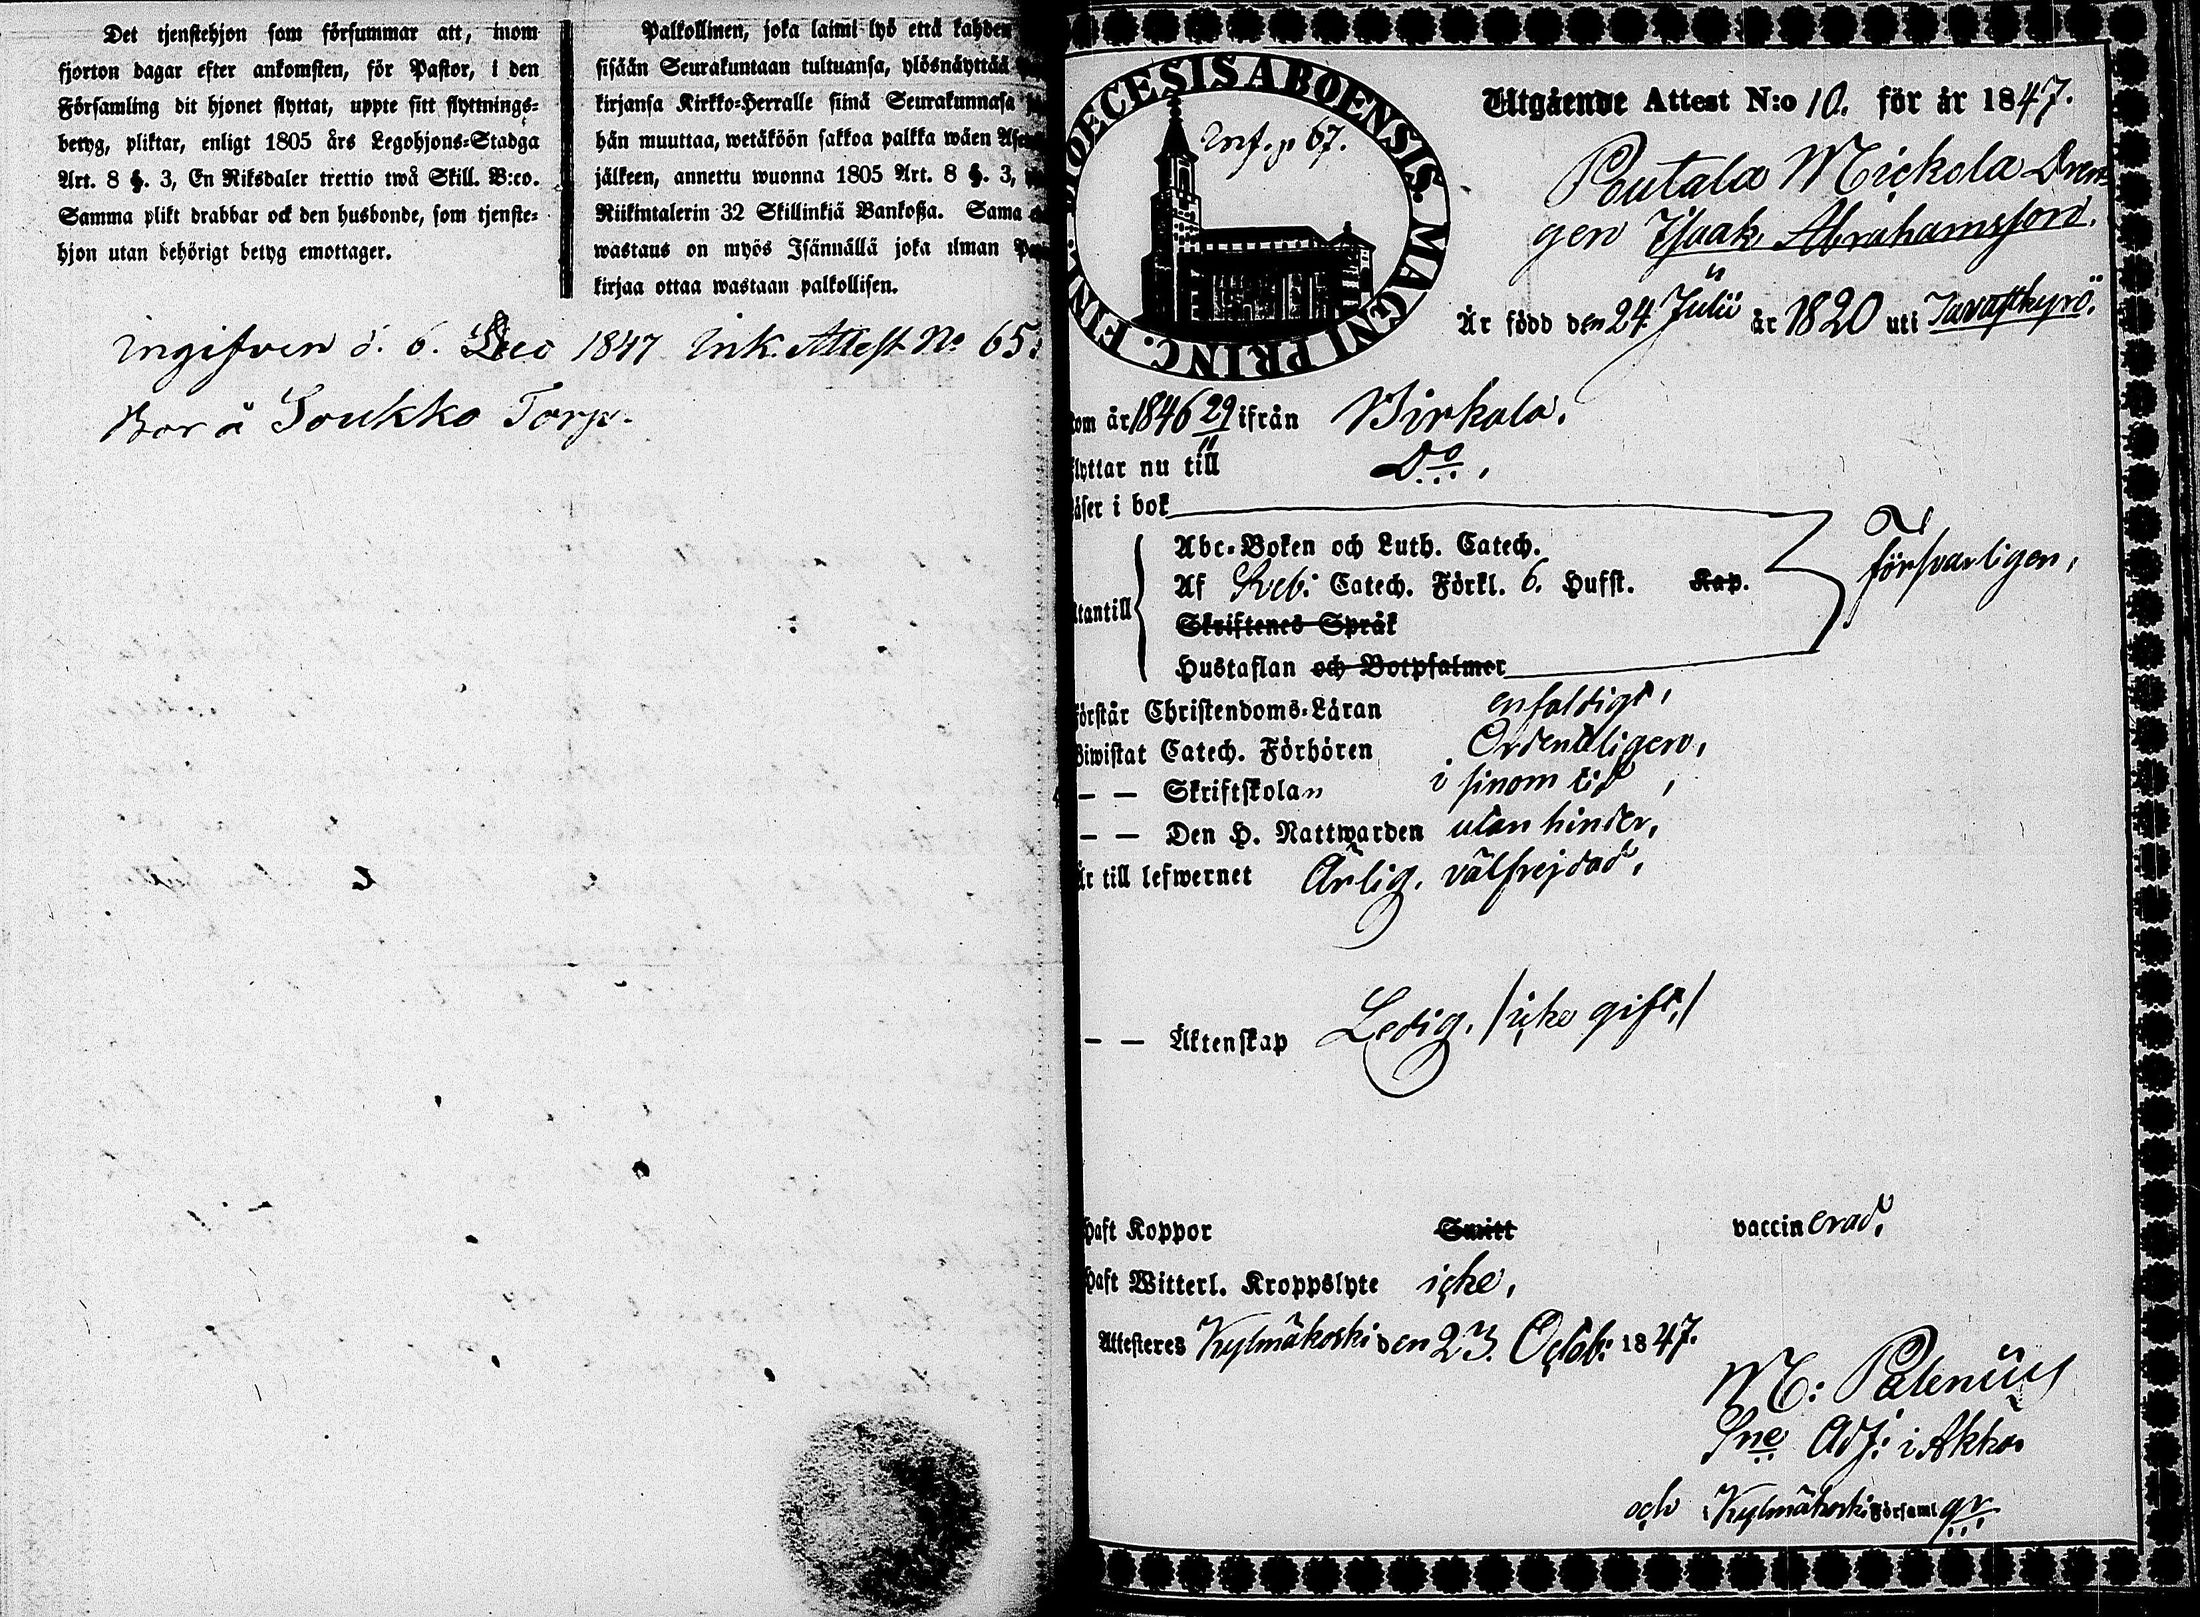 Det tjenstehjon som försummar att, inom
fjorton dagar efter ankomsten, för Pastor, i den
Församling dit hjonet flyttat, uppte sitt flyttnings-
betyg, pliktar, enligt 1805 års Legohjons-Stadga
Art. 8 §. 3, En Riksdaler trettio twå Skill. B:co.
Samma plikt drabbar ock den husbonde, som tjenste-
hjon utan behörigt betyg emottager.
Palkollinen, joka laimi-lyö että kahden
sisään Seurakuntaan tultuansa, ylösnäyttää
kirjansa Kirkko-Herralle siinä Seurakunnasa
hän muuttaa, wetäköön sakkoa palkka wäen
jälkeen, annettu wuonna 1805 Art. 8 §. 3,
Riikintalerin 32 Skillinkiä Bankoßa. Sama
wastaus on myös Isännällä joka ilman
kirjaa ottaa wastaan palkollisen.
Ingifven d. 6. Dec 1847 Ink. Attest No 65.
Bor å Soukko Torp.
DIOECESIS ABOENSIS. MAGNI PRINC. FINL.
Inf. p 67.
Utgående Attest N:o 10. för år 1847.
Poutala Mickola Dren-
gen Isaak Abrahamsson.
Är född den 24 Julii år 1820 uti Tavastkyrö.
om år 1846 29/11 ifrån Birkala.
flyttar nu till Do.
läser i bok
Abc-Boken och Luth. Catech.
Af Sveb: Catech. Förkl. 6. Hufst. Kap.
utantill
Skriftenes Språk
Hustaflan och Botpsalmer
försvarligen,
förstår Christendoms-Läran enfaldigt,
Biwistat Catech. Förhören Ordentligen,
— — Skriftskolan i sinom tid,
— — Den H. Nattwarden utan hinder,
Är till lefwernet Ärlig, välfrejdad,
— — Äktenskap Ledig. /icke gift,/
Haft Koppor Smitt vaccinerad.
Haft Witterl. Kroppslyte icke,
Attesteres Kylmäkoski den 23. Octob: 1847.
M: Palenius
Sne Adj: i Akkas
och Kylmäkoski Församl gr